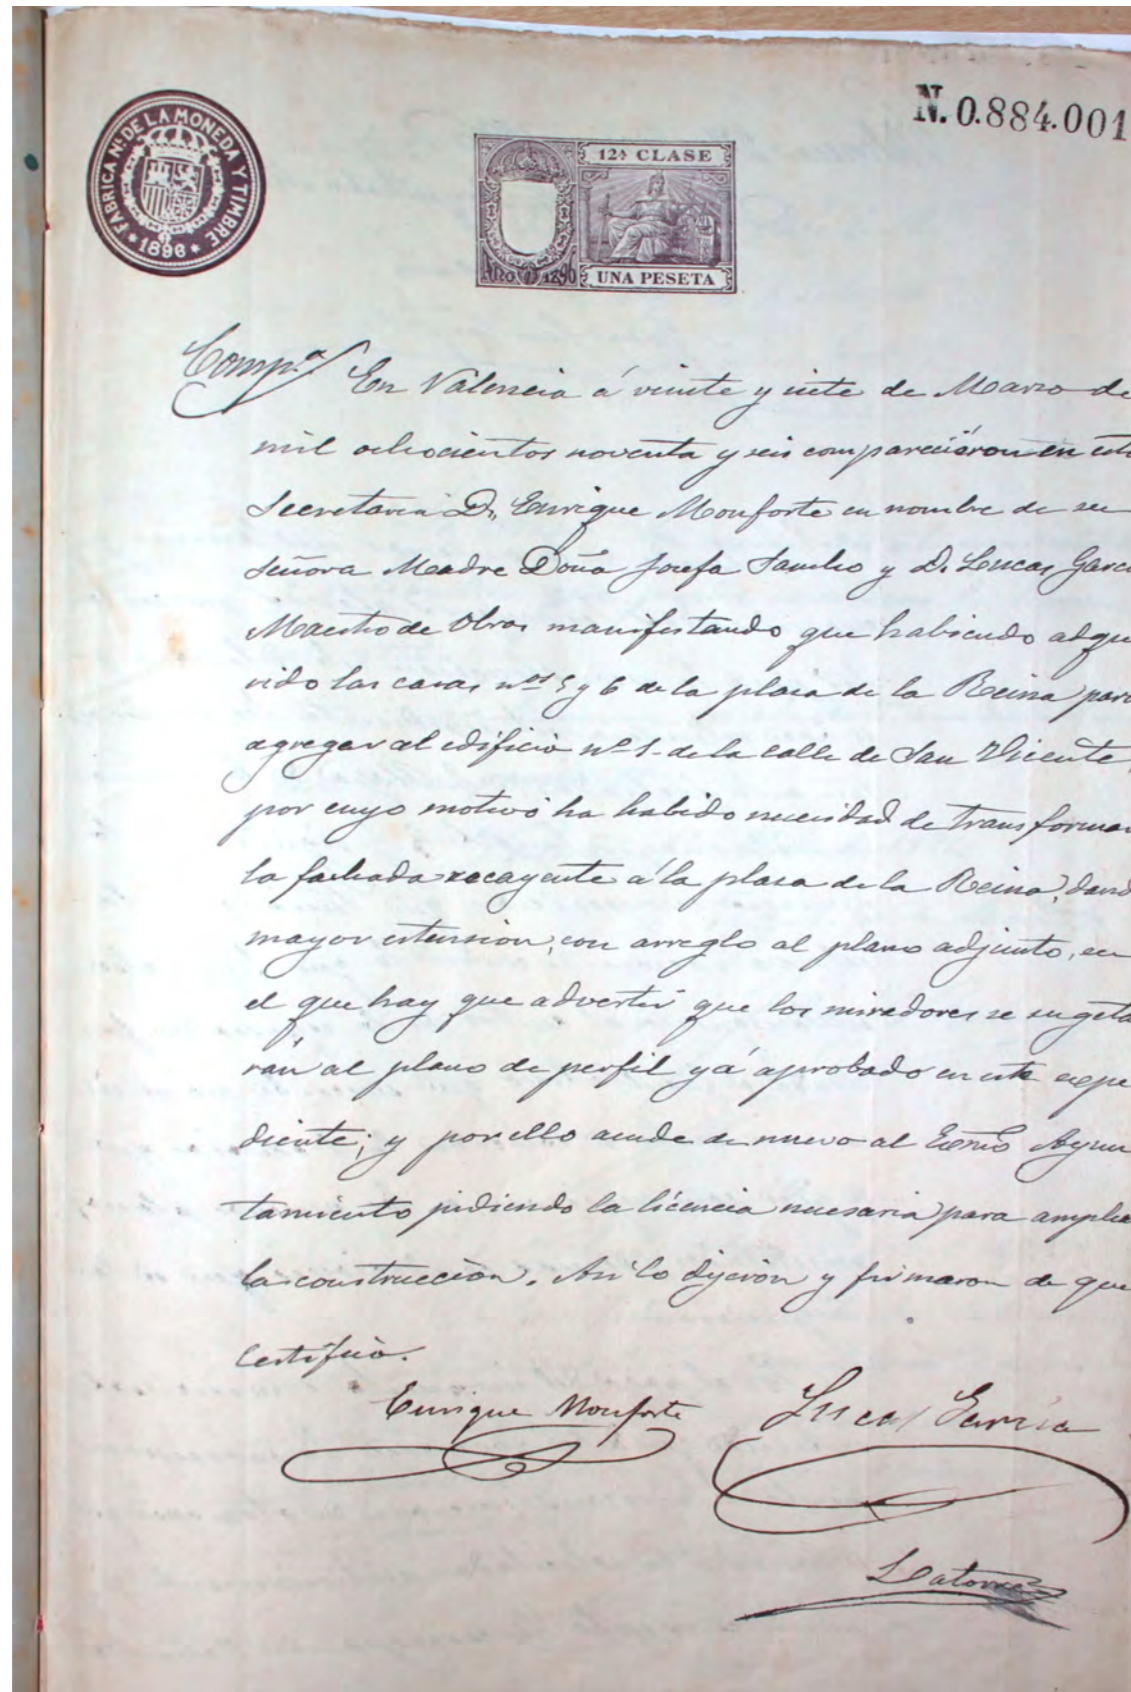 N. 0.884.001
FABRICA N.l DE LA MONEDA Y TIMBRE
* 1896 *
12ª CLASE
Año D 1896
UNA PESETA
Comp.ª En Valencia á veinte y siete de Marzo de
mil ochocientos noventa y seis compareciéron en esta
Secretaria D. Enrique Monforte en nombre de su
Señora Madre Doña Josefa Sancho y D. Lucas Garci
Maestro de Obras manifestando que habiendo adqui
rido las casas nos 5 y 6 de la plasa de la Reina para
agregar al edificio nº 1. de la calle de San Vicente,
por cuyo motivo ha habido necesidad de transformar
la fachada recayente á la plasa de la Reina, dand
mayor estension, con arreglo al plano adjunto, en
el que hay que advertir que los miradores se sugeta
rán al plano de perfil yá aprobado en este espe
diente; y por ello acude de nuevo al Exmo Ayun
tamiento pidiendo la licencia necesaria para amplia
la construccion. Asi lo dijeron y firmaron de que
Certifico.
Enrique Monforte Lucas Garcia
Latorre